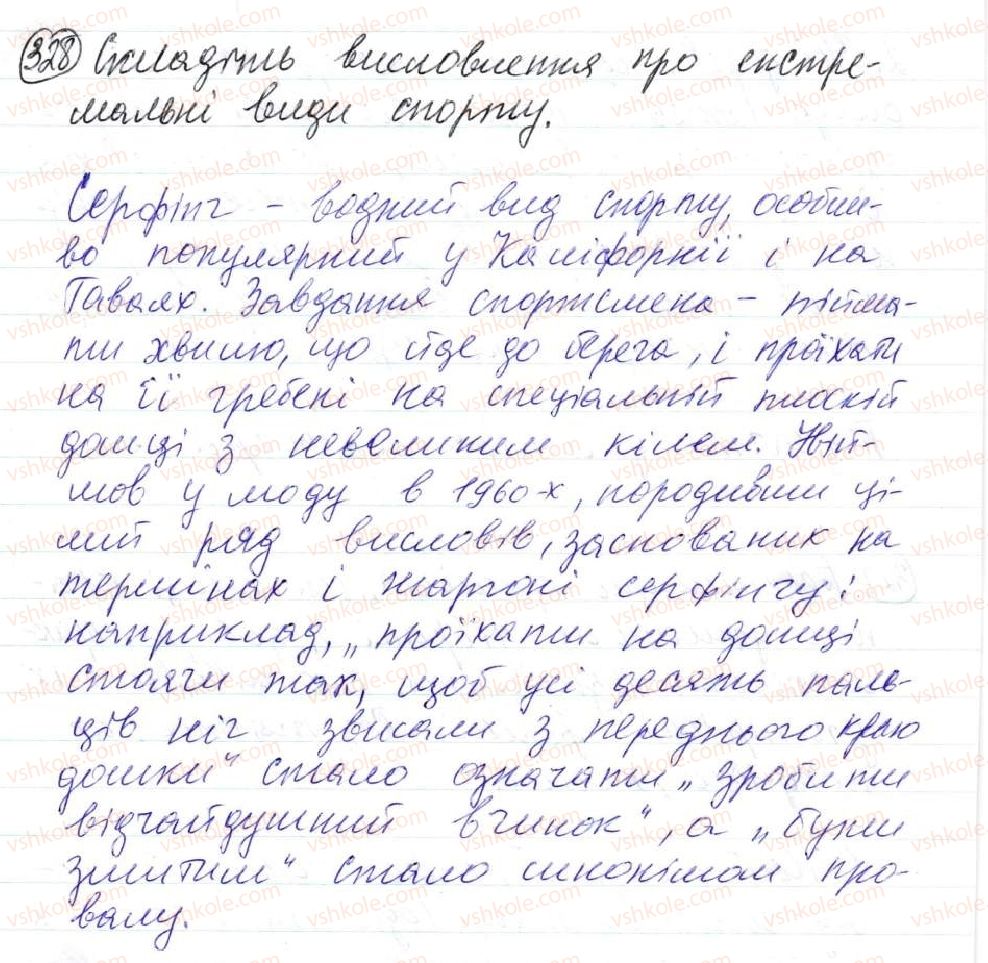 328 Складіть висловлення про екстре-
мальні види спорту.
Серфінг - водний вид спорту, особли-
во популярний у Каліфорнії і на
Гаваях. Завдання спортсмена - пійма-
ти хвилю, що йде до берега, і проїхати
на її гребені на спеціальній плоскій
дошці з невеликим кілем. Увій-
шов у моду в 1960-х, породивши ці-
лий ряд висловів, заснованих на
термінах і жаргоні серфінгу:
наприклад, „проїхати на дошці
стоячи так, щоб усі десять паль-
ців ніг звисали з переднього краю
дошки" стало означати „зробити
відчайдушний вчинок", а „бути
змитим" стало синонімом про-
валу.